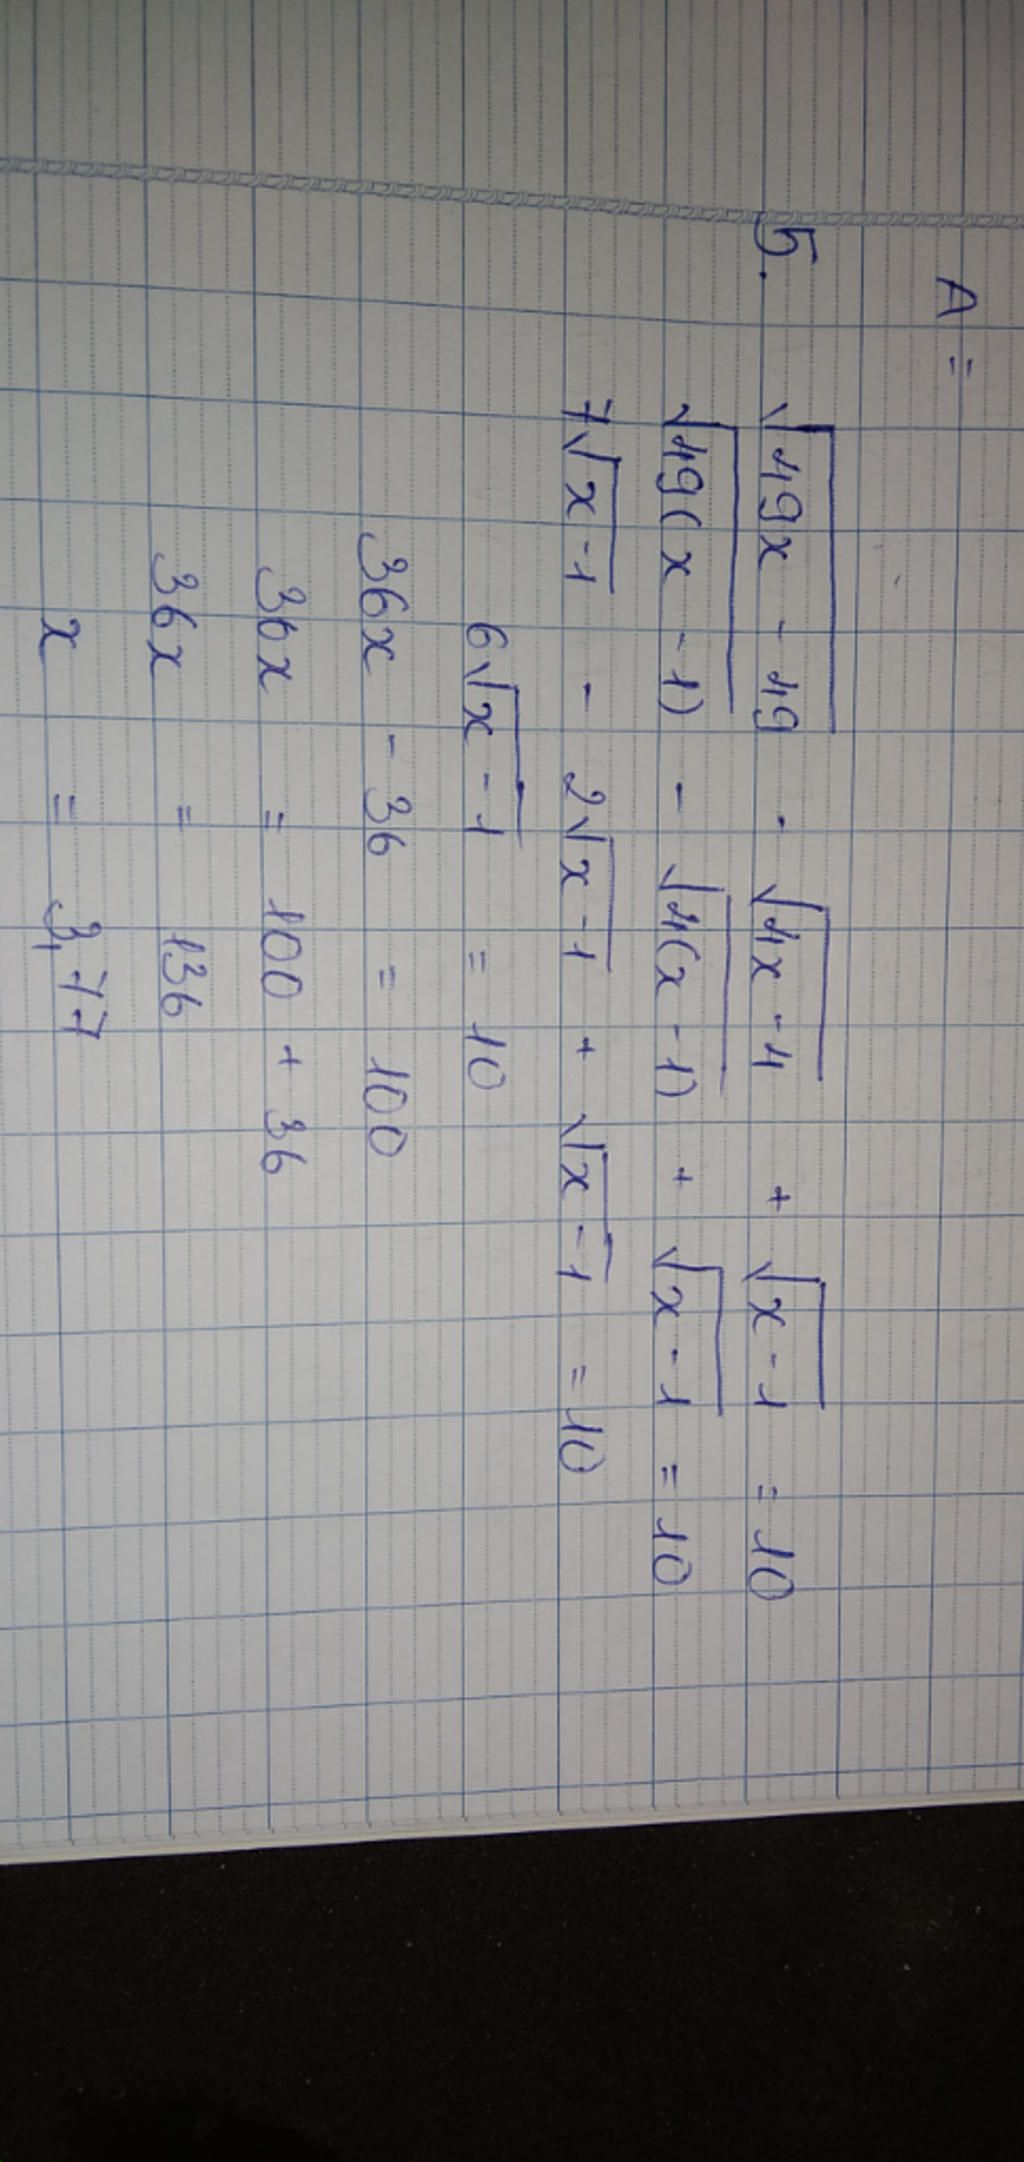 A =
5. √(49x - 49) - √(4x - 4) + √(x - 1) = 10
√(49(x - 1)) - √(4(x - 1)) + √(x - 1) = 10
7√(x - 1) - 2√(x - 1) + √(x - 1) = 10
6√(x - 1) = 10
36x - 36 = 100
36x = 100 + 36
36x = 136
x = 3,77